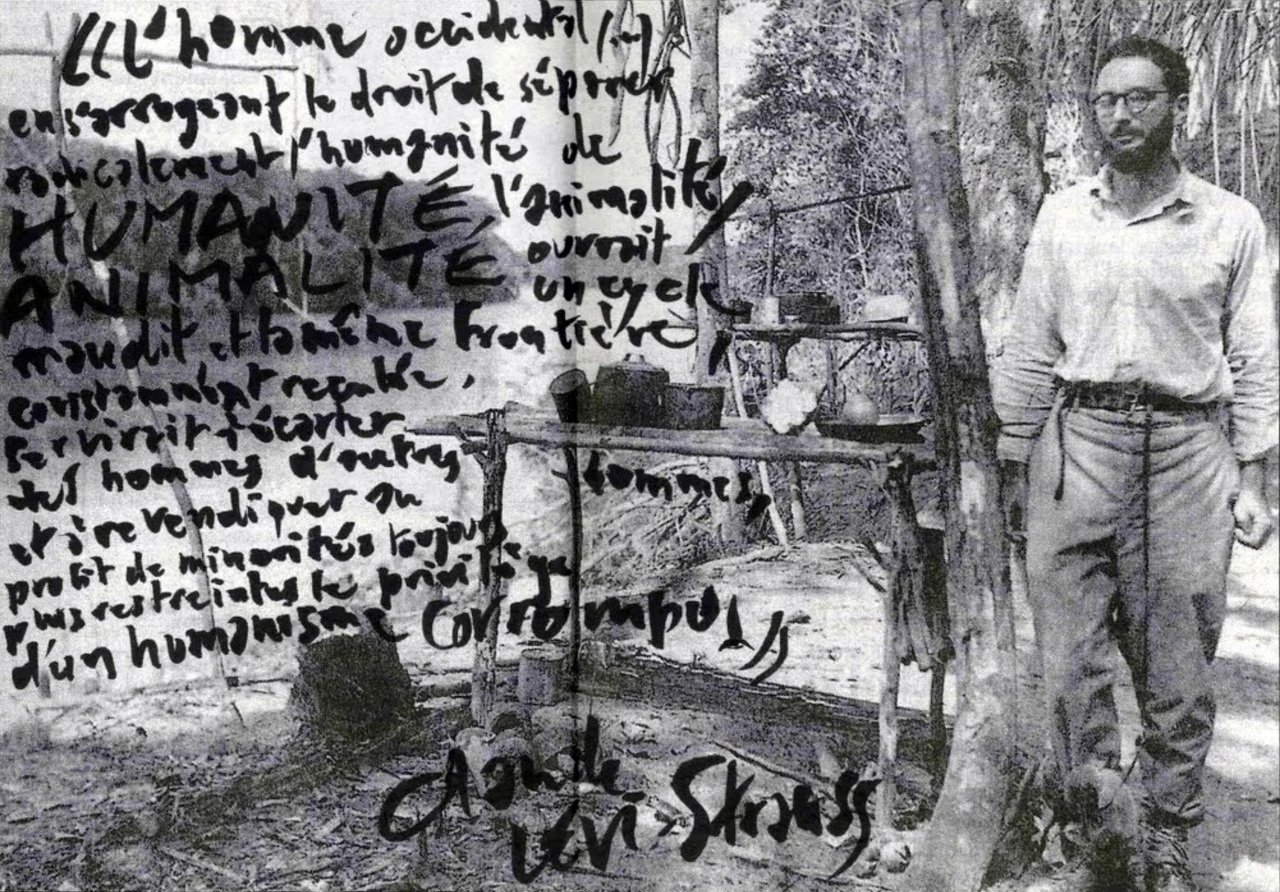 « L'homme occidental (...)
en s'arrogeant le droit de séparer
radicalement l'humanité de
HUMANITÉ, l'animalité,
ANIMALITÉ ouvrait
un cycle
maudit et la même frontière,
constamment reculée,
servirait à écarter
des hommes d'autres hommes,
et à revendiquer au
profit de minorités toujours
plus restreintes le privilège
d'un humanisme corrompu, »
Claude
Lévi-Strauss